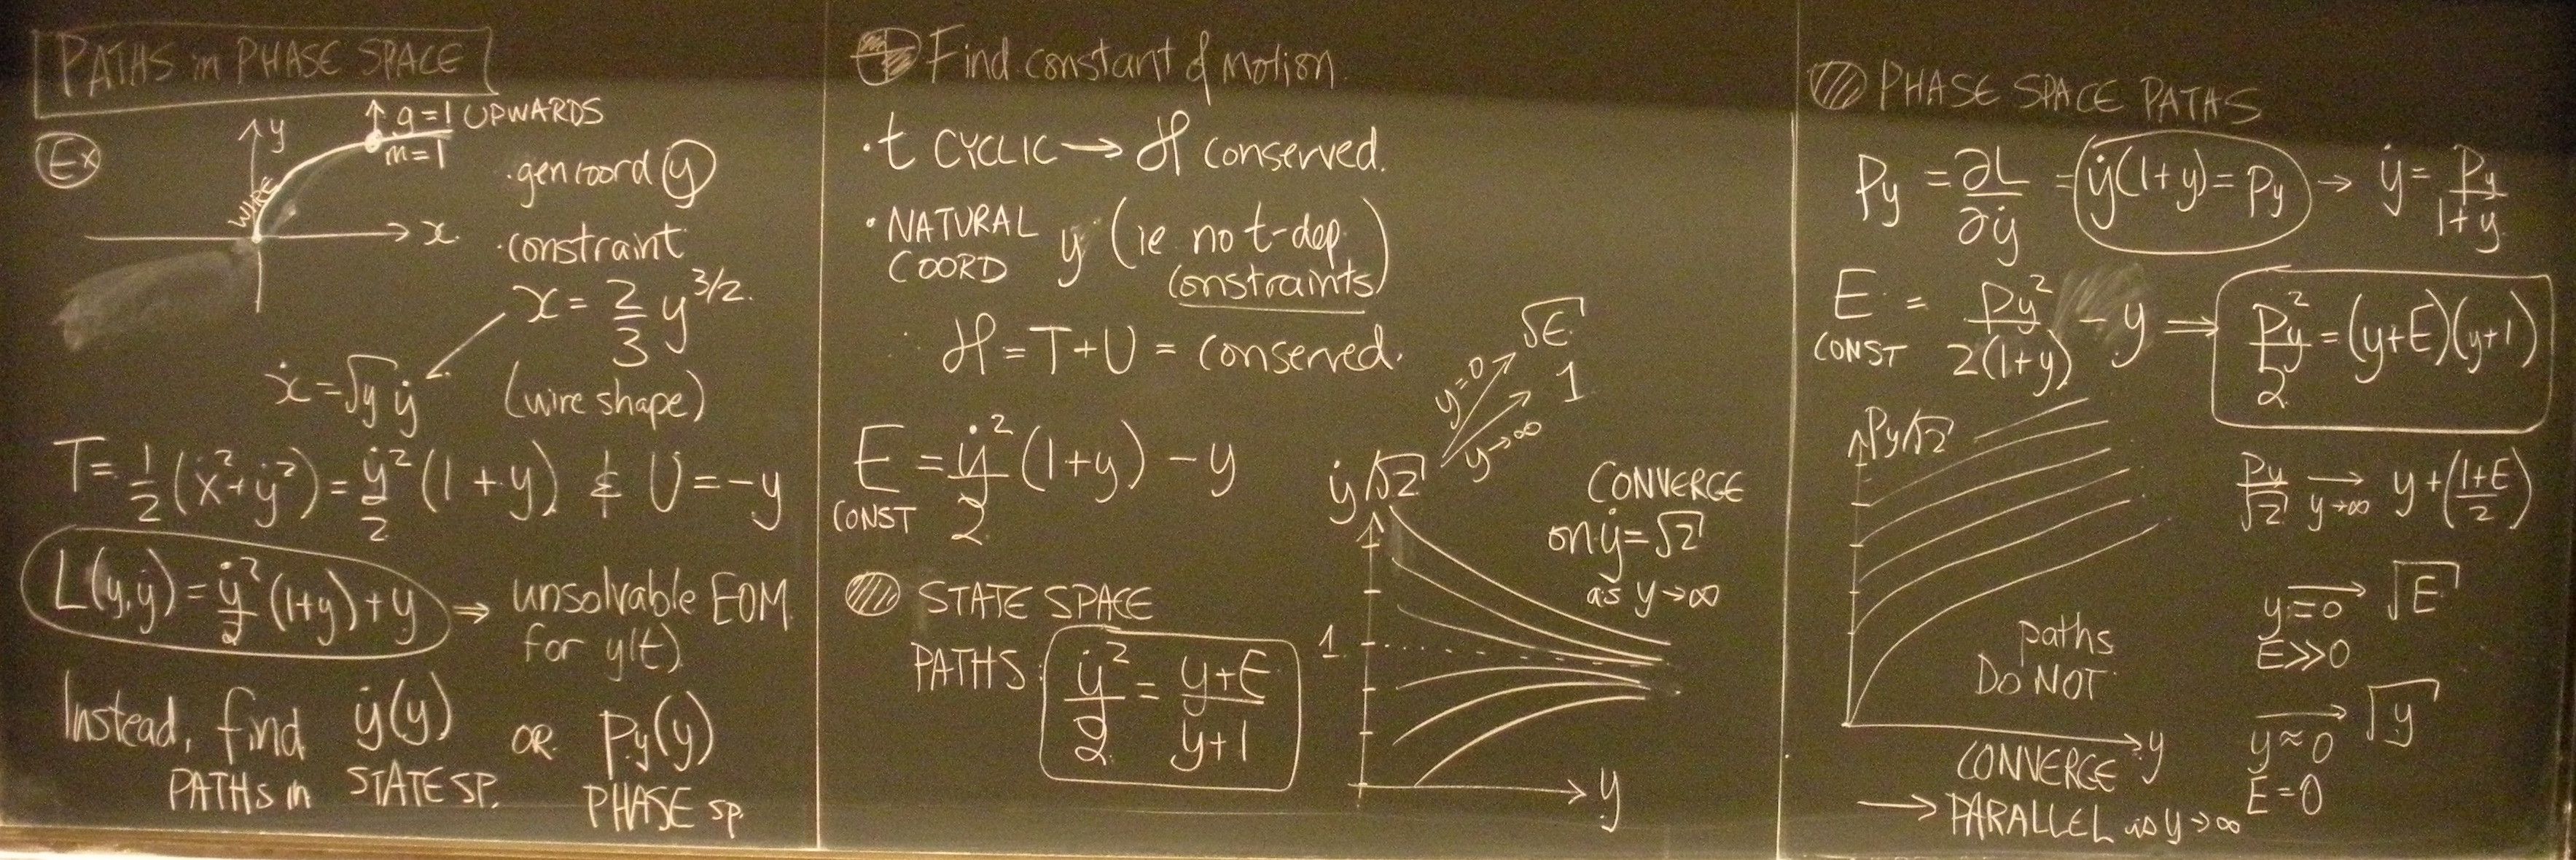 PATHS in PHASE SPACE
Ex
y
g=1 UPWARDS
m=1
WIRE
x
· gen coord y
· constraint
x = 2/3 y^3/2
ẋ = √y ẏ
(wire shape)
T = 1/2 (ẋ² + ẏ²) = ẏ²/2 (1+y) & U = -y
L(y,ẏ) = ẏ²/2 (1+y) + y ⇒ unsolvable EOM
for y(t)
Instead, find ẏ(y) OR Py(y)
PATHs in STATE SP. PHASE sp.
Find constant of motion.
· t CYCLIC → H conserved.
· NATURAL COORD y (ie no t-dep. constraints)
∴ H = T+U = conserved.
E = ẏ²/2 (1+y) - y
CONST
STATE SPACE
PATHS: ẏ²/2 = (y+E)/(y+1)
y=0 √E
y→∞ 1
ẏ/√2
1
y
CONVERGE
on ẏ=√2
as y→∞
PHASE SPACE PATHS
Py = ∂L/∂ẏ = ẏ(1+y) = Py → ẏ = Py/(1+y)
E = Py²/2(1+y) - y ⇒ Py²/2 = (y+E)(y+1)
CONST
Py/√2
y
Py/√2 → y→∞ y + ((1+E)/2)
y=0 E>>0 → √E
y≈0 E=0 → √y
paths
DO NOT
CONVERGE
→ PARALLEL as y→∞